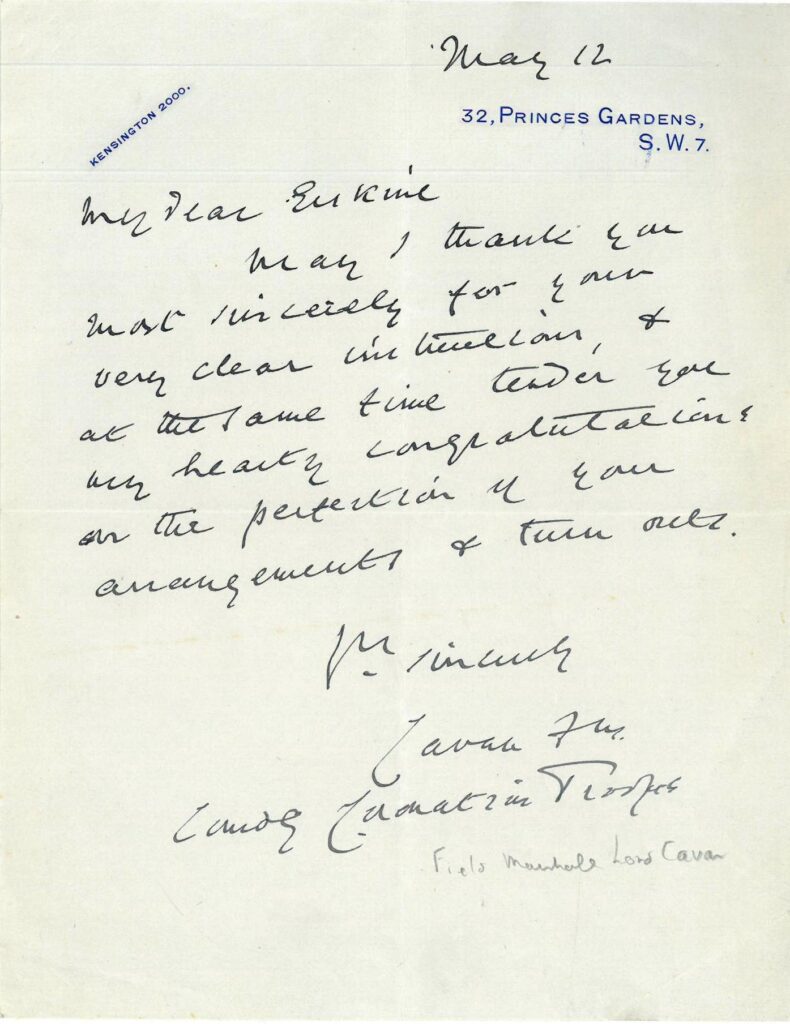 May 12
KENSINGTON 2000.
32, PRINCES GARDENS,
S. W. 7.
My dear Erskine
May I thank you
most sincerely for your
very clear instructions, &
at the same time tender you
my hearty congratulations
on the perfection of your
arrangements & turn outs.
Yrs sincerely
Cavan F.M.
Comdg Coronation Troops
Field Marshall Lord Cavan